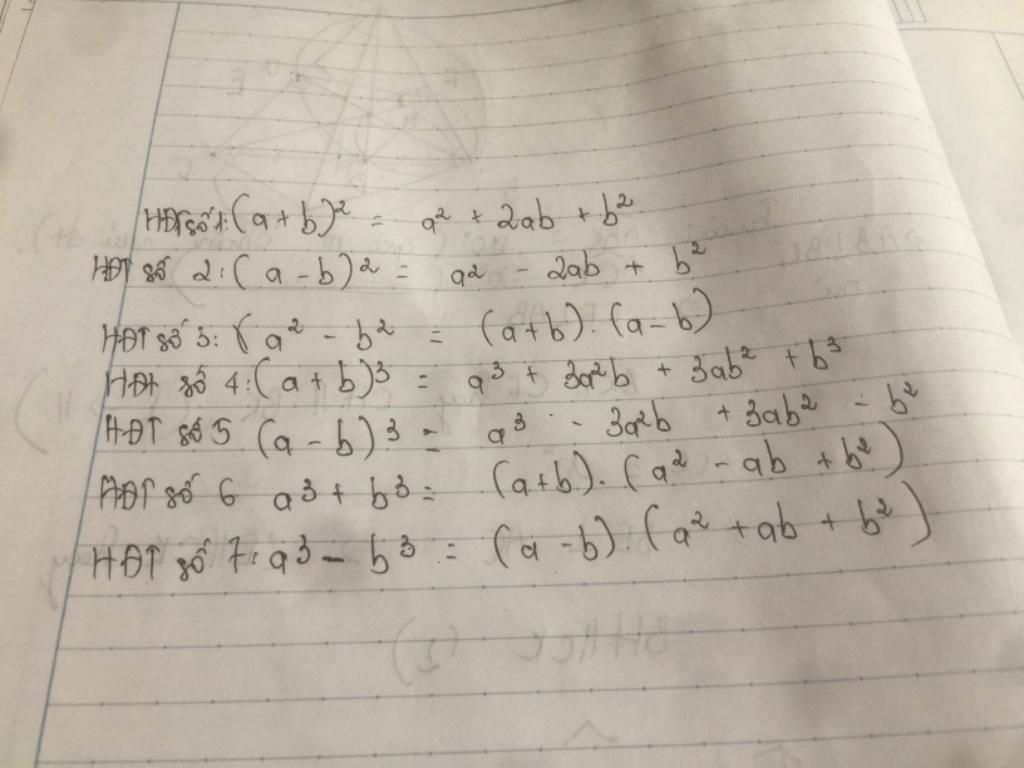 HĐT số 1: (a + b)² = a² + 2ab + b²
HĐT số 2: (a - b)² = a² - 2ab + b²
HĐT số 3: ( a² - b² = (a+b) . (a-b)
HĐT số 4: (a + b)³ = a³ + 3a²b + 3ab² + b³
HĐT số 5 (a - b)³ = a³ - 3a²b + 3ab² - b²
HĐT số 6 a³ + b³ = (a+b) . (a² - ab + b²)
HĐT số 7: a³ - b³ = (a - b) . (a² + ab + b²)